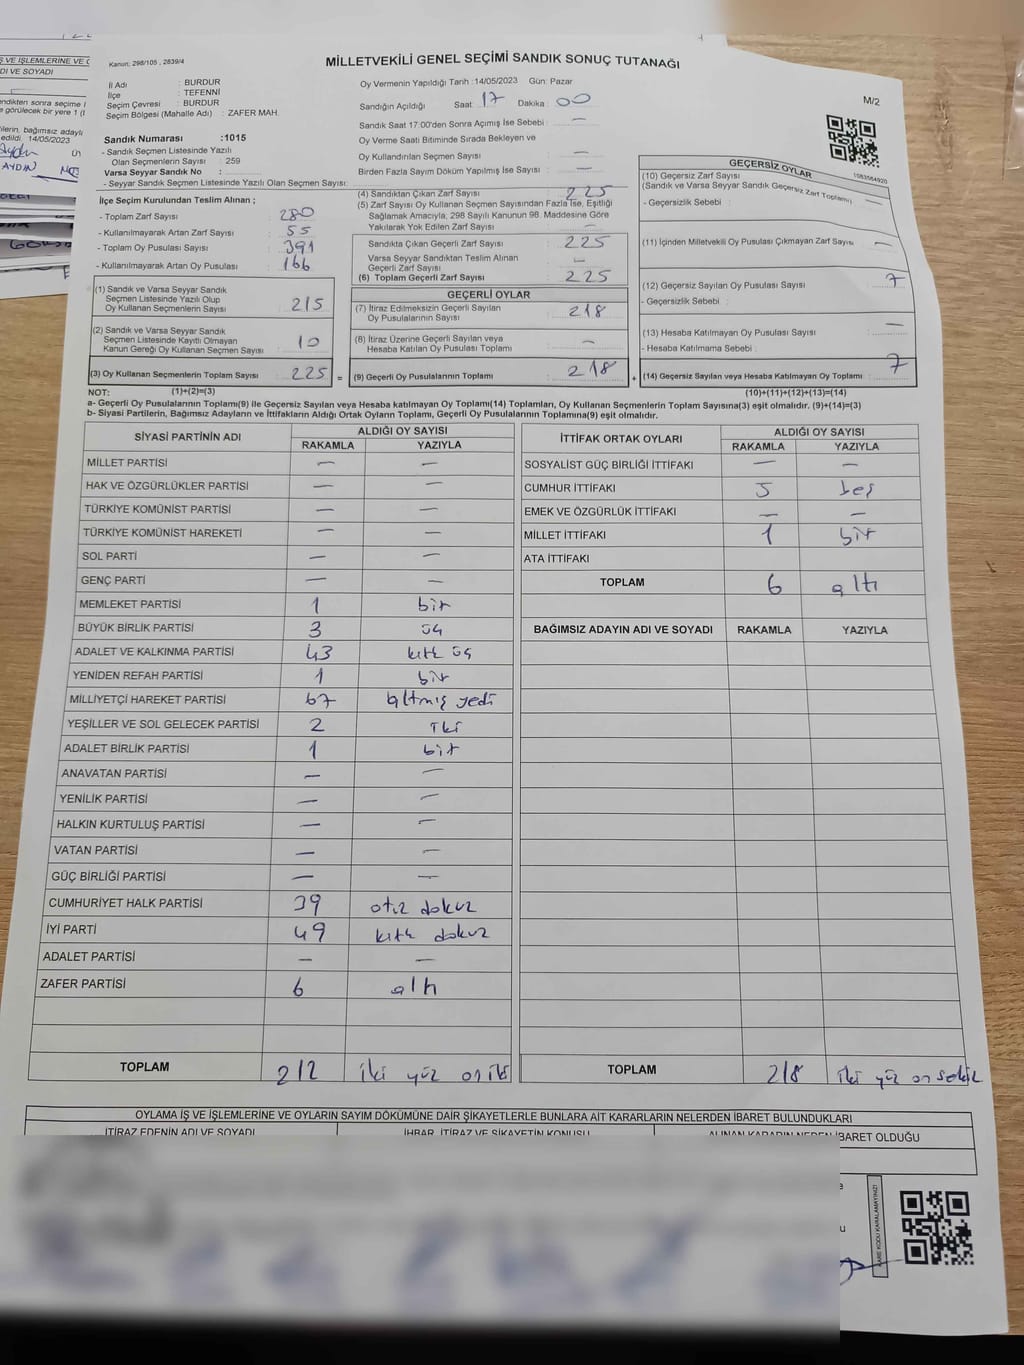 MİLLETVEKİLİ GENEL SEÇİMİ SANDIK SONUÇ TUTANAĞI
Kanun: 298/105 , 2839/4
İl Adı : BURDUR
İlçe : TEFENNİ
Seçim Çevresi : BURDUR
Seçim Bölgesi (Mahalle Adı) : ZAFER MAH.
Sandık Numarası :1015
- Sandık Seçmen Listesinde Yazılı
Olan Seçmenlerin Sayısı : 259
Varsa Seyyar Sandık No :
- Seyyar Sandık Seçmen Listesinde Yazılı Olan Seçmen Sayısı:
İlçe Seçim Kurulundan Teslim Alınan ;
- Toplam Zarf Sayısı : 280
- Kullanılmayarak Artan Zarf Sayısı : 55
- Toplam Oy Pusulası Sayısı : 391
- Kullanılmayarak Artan Oy Pusulası : 166
(1) Sandık ve Varsa Seyyar Sandık
Seçmen Listesinde Yazılı Olup
Oy Kullanan Seçmenlerin Sayısı : 215
(2) Sandık ve Varsa Seyyar Sandık
Seçmen Listesinde Kayıtlı Olmayan
Kanun Gereği Oy Kullanan Seçmen Sayısı : 10
(3) Oy Kullanan Seçmenlerin Toplam Sayısı : 225 =
Oy Vermenin Yapıldığı Tarih :14/05/2023 Gün: Pazar
Sandığın Açıldığı Saat 17 Dakika : 00
Sandık Saat 17:00'den Sonra Açımış İse Sebebi : —
Oy Verme Saati Bitiminde Sırada Bekleyen ve
Oy Kullandırılan Seçmen Sayısı : —
Birden Fazla Sayım Döküm Yapılmış İse Sayısı : —
(4) Sandıktan Çıkan Zarf Sayısı : 225
(5) Zarf Sayısı Oy Kullanan Seçmen Sayısından Fazla İse, Eşitliği
Sağlamak Amacıyla, 298 Sayılı Kanunun 98. Maddesine Göre
Yakılarak Yok Edilen Zarf Sayısı : —
Sandıkta Çıkan Geçerli Zarf Sayısı : 225
Varsa Seyyar Sandıktan Teslim Alınan
Geçerli Zarf Sayısı : —
(6) Toplam Geçerli Zarf Sayısı : 225
GEÇERLİ OYLAR
(7) İtiraz Edilmeksizin Geçerli Sayılan
Oy Pusulalarının Sayısı : 218
(8) İtiraz Üzerine Geçerli Sayılan veya
Hesaba Katılan Oy Pusulası Toplamı : —
(9) Geçerli Oy Pusulalarının Toplamı : 218 +
M/2
1083564920
GEÇERSİZ OYLAR
(10) Geçersiz Zarf Sayısı
(Sandık ve Varsa Seyyar Sandık Geçersiz Zarf Toplamı) : —
- Geçersizlik Sebebi :
(11) İçinden Milletvekili Oy Pusulası Çıkmayan Zarf Sayısı : —
(12) Geçersiz Sayılan Oy Pusulası Sayısı : 7
- Geçersizlik Sebebi :
(13) Hesaba Katılmayan Oy Pusulası Sayısı : —
- Hesaba Katılmama Sebebi :
(14) Geçersiz Sayılan veya Hesaba Katılmayan Oy Toplamı : 7
NOT: (1)+(2)=(3) (10)+(11)+(12)+(13)=(14)
a- Geçerli Oy Pusulalarının Toplamı(9) ile Geçersiz Sayılan veya Hesaba katılmayan Oy Pusulası Toplamı(14) Toplamları, Oy Kullanan Seçmenlerin Toplam Sayısına(3) eşit olmalıdır. (9)+(14)=(3)
b- Siyasi Partilerin, Bağımsız Adayların ve İttifakların Aldığı Ortak Oyların Toplamı, Geçerli Oy Pusulalarının Toplamına(9) eşit olmalıdır.
SİYASİ PARTİNİN ADI ALDIĞI OY SAYISI
RAKAMLA YAZIYLA
MİLLET PARTİSİ — —
HAK VE ÖZGÜRLÜKLER PARTİSİ — —
TÜRKİYE KOMÜNİST PARTİSİ — —
TÜRKİYE KOMÜNİST HAREKETİ — —
SOL PARTİ — —
GENÇ PARTİ — —
MEMLEKET PARTİSİ 1 bir
BÜYÜK BİRLİK PARTİSİ 3 üç
ADALET VE KALKINMA PARTİSİ 43 kırk üç
YENİDEN REFAH PARTİSİ 1 bir
MİLLİYETÇİ HAREKET PARTİSİ 67 altmış yedi
YEŞİLLER VE SOL GELECEK PARTİSİ 2 iki
ADALET BİRLİK PARTİSİ 1 bir
ANAVATAN PARTİSİ — —
YENİLİK PARTİSİ — —
HALKIN KURTULUŞ PARTİSİ — —
VATAN PARTİSİ — —
GÜÇ BİRLİĞİ PARTİSİ — —
CUMHURİYET HALK PARTİSİ 39 otuz dokuz
İYİ PARTİ 49 kırk dokuz
ADALET PARTİSİ — —
ZAFER PARTİSİ 6 altı
TOPLAM 212 iki yüz on iki
İTTİFAK ORTAK OYLARI ALDIĞI OY SAYISI
RAKAMLA YAZIYLA
SOSYALİST GÜÇ BİRLİĞİ İTTİFAKI — —
CUMHUR İTTİFAKI 5 beş
EMEK VE ÖZGÜRLÜK İTTİFAKI — —
MİLLET İTTİFAKI 1 bir
ATA İTTİFAKI
TOPLAM 6 altı
BAĞIMSIZ ADAYIN ADI VE SOYADI RAKAMLA YAZIYLA
TOPLAM 218 iki yüz on sekiz
OYLAMA İŞ VE İŞLEMLERİNE VE OYLARIN SAYIM DÖKÜMÜNE DAİR ŞİKAYETLERLE BUNLARA AİT KARARLARIN NELERDEN İBARET BULUNDUKLARI
İTİRAZ EDENİN ADI VE SOYADI İHBAR, İTİRAZ VE ŞİKAYETİN KONUSU ALINAN KARARIN NEDEN İBARET OLDUĞU